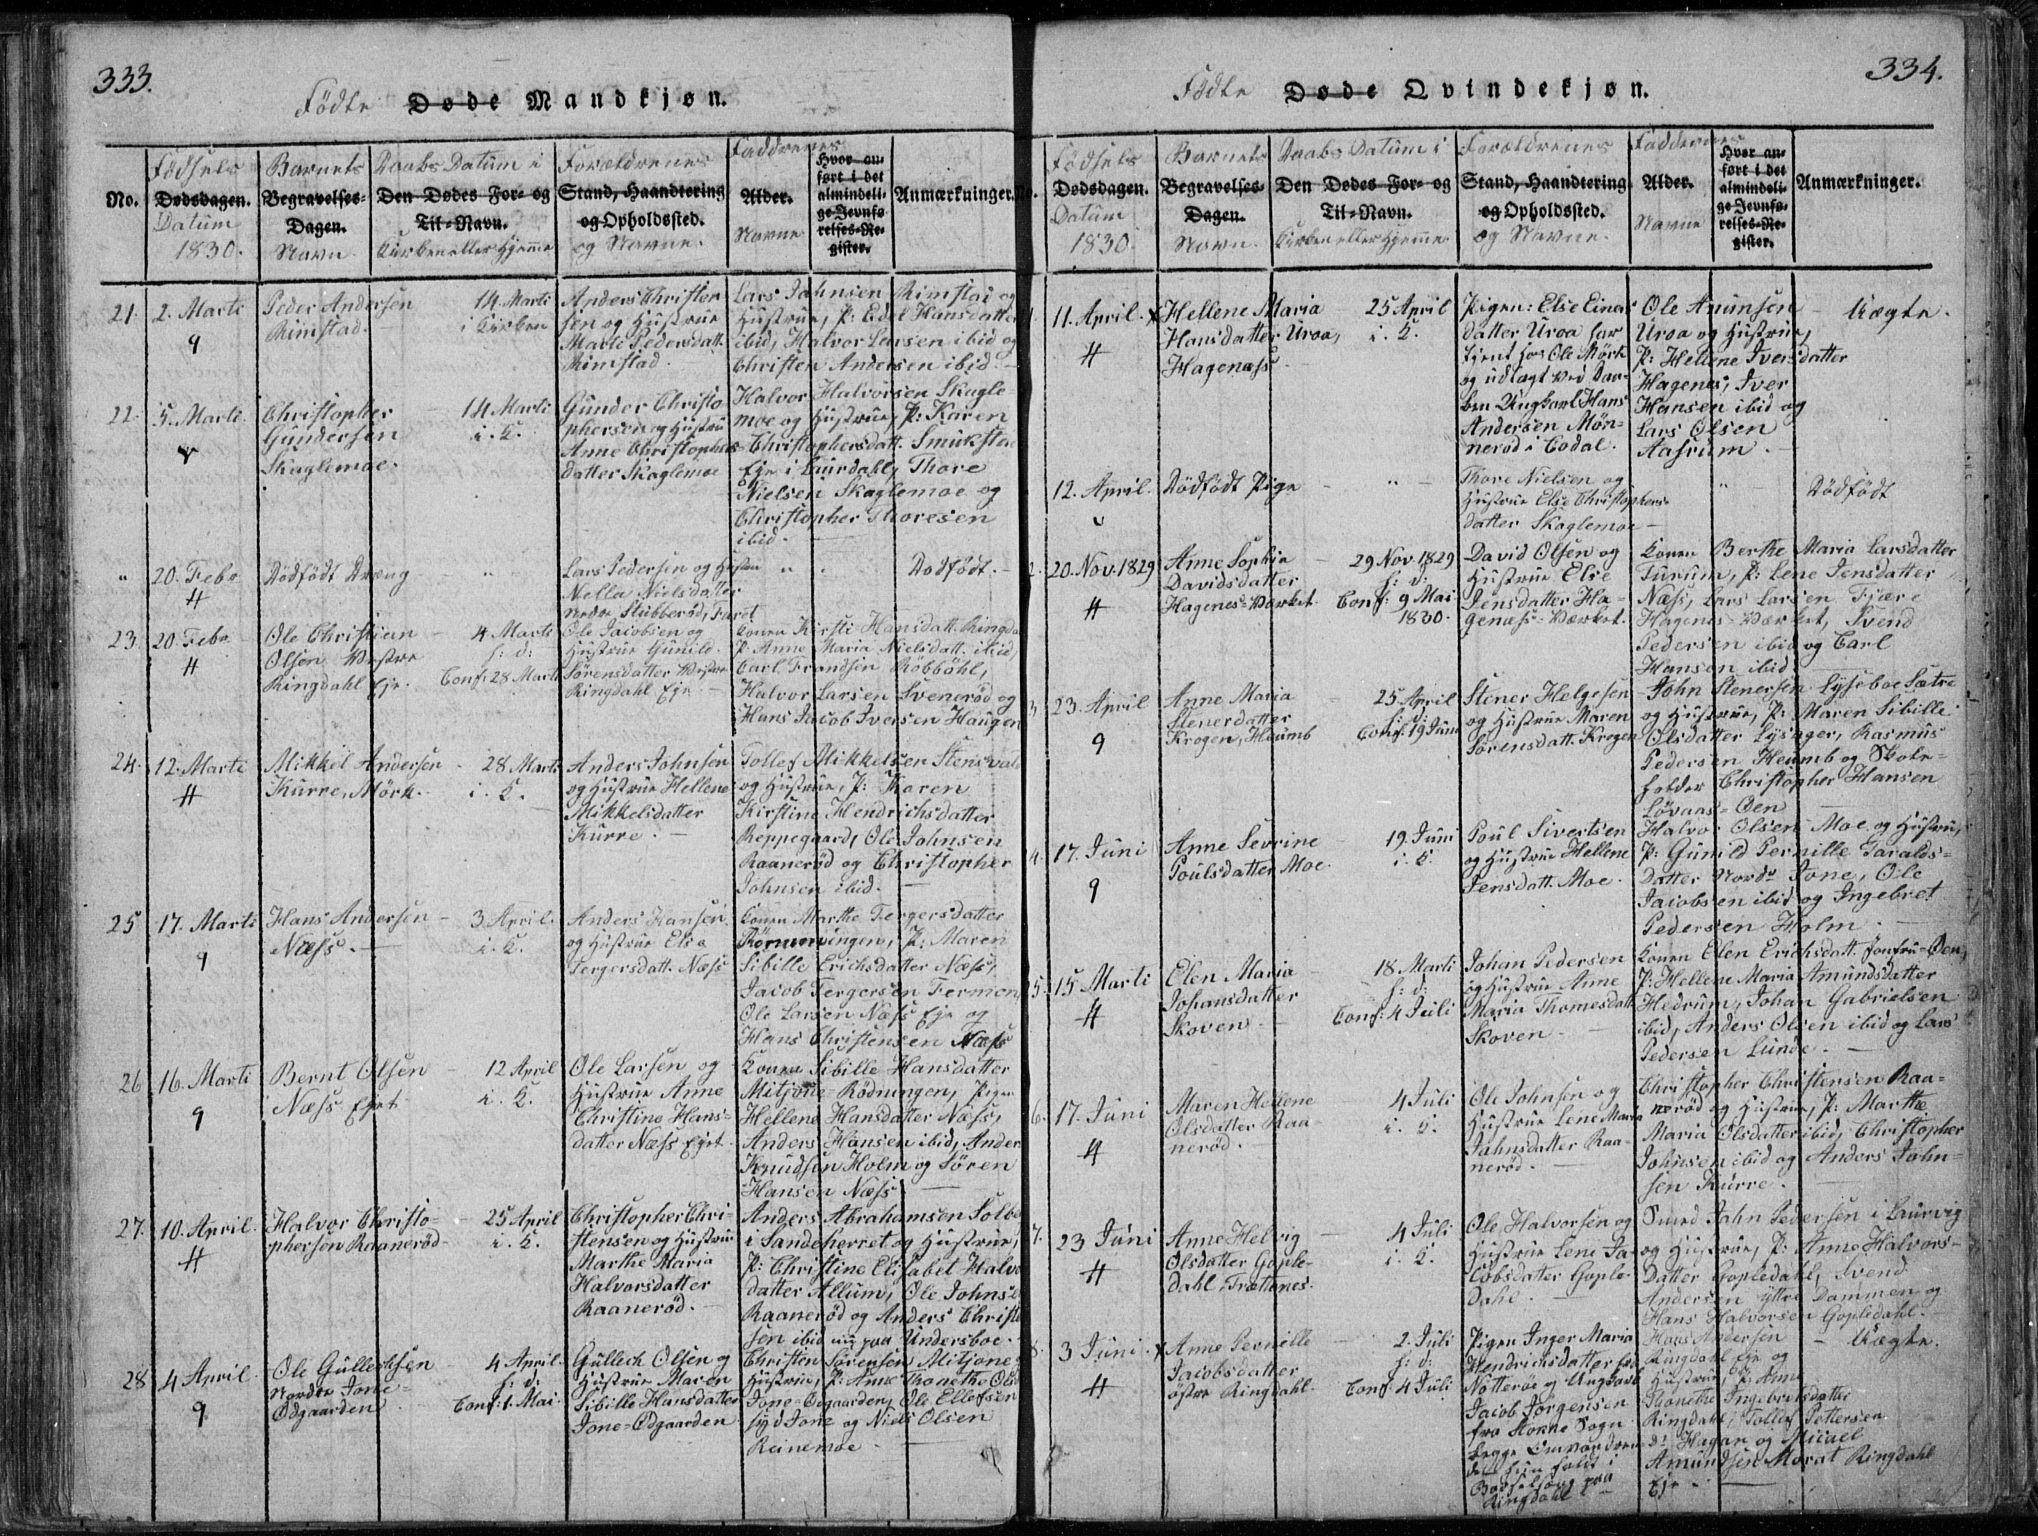 333.
Födte Døde Mandkjøn.
No.
Födsels
Dødsdagen.
Datum
1830.
Barnets
Begravelses-
Dagen.
Navn
Daabs Datum i
Den Dødes For- og
Til-Navn.
Kirken eller Hjemme
Forældrenes
Stand, Haandtering
og Opholdssted.
og Navne.
Faddrenes
Alder.
Navne
Hvor an-
ført i det
almindeli-
ge Jevnfø-
relses-Re-
gister.
Anmærkninger.
21.
2. Marti
9
Peder Andersen
Rimstad.
14 Marti
i Kirken
Anders Christen
sen og Hustrue
Marte Pedersdatt.
Rimstad.
Lars Jahnsen Rimstad og
Hustrue, P: Edel Hansdatter
ibid, Halvor Larsen ibid og
Christen Andersen ibid.
22.
5. Marti.
Christopher
Gundersen
Skaglemoe.
14 Marti
i. K.
Gunder Christo
phersen og Hustru
Anne Christophers
datter Skaglemoe
Halvor Halvorsen Skagle-
moe og Hustrue, P: Karen
Christophersdatt. Smuksten
Eje i Laurdahl, Thore
Nielsen Skaglemoe og
Christopher Thoresen
ibid.
"
20. Febr
#
Dödfödt Dreng
"
Lars Pedersen og Hustru
Nella Nielsdatter
nedre Stubberød, Faret
" "
Dödfödt.
23.
20. Febr
#
Ole Christian
Olsen Vestre
Ringdahl Eje.
4 Marti
h: d:
Conf: 28 Marti
Ole Jacobsen og
Hustrue Gunild
Sørensdatter Vestre
Ringdahl Eje.
Konen Kirsti Hansdatt. Ringda
P: Anne Maria Nielsdatt. ibid,
Carl Frandsen Röbböhl,
Halvor Larsen Svenerød og
Hans Jacob Iversen Haugen
24.
12. Marti
#
Mikkel Andersen
Kurre, Mörk.
28 Marti
i. K.
Anders Johnsen
og Hustrue Hellene
Mikkelsdatter
Kurre.
Tollef Mikkelsen Stensvald
og Hustrue, P: Karen
Kirstine Hendrichsdatter
Reppegaard, Ole Johnsen
Raanerød og Christopher
Johnsen ibid.
25
17. Marti
9
Hans Andersen
Næss.
3 April.
i. K.
Anders Hansen
og Hustrue Else
Tergersdatt. Næss
Konen Marthe Tergersdatter
P: Maren
Sibille Erichsdatter Næss,
Jacob Tergersen Fermen,
Ole Larsen Næss Eje og
Hans Christensen Næss
26
16. Marti
9
Bernt Olsen
Næss Ejet
12 April
i. K.
Ole Larsen og
Hustrue Anne
Christine Hans-
datter Næss Ejet.
Konen Sibille Hansdatter
Mitjone-Rödningen, Pigen
Hellene Hansdatter Næss,
Anders Hansen ibid, Anders
Knudsen Holm og Sören
Hansen Næss
27.
10. April.
#
Halvor Christo-
phersen Raanerød
25 April
i. K.
Christopher Chri-
stensen og Hustrue
Marthe Maria
Halvorsdatter
Raanerød.
Anders Abrahamsen Solbe
i Sandeherret og Hustrue,
P: Christine Elisabet Halvo
datter Allum, Ole Johnse
Raanerød og Anders Christe
sen ibid nu paa Undersboe.
28
4 April.
9
Ole Gullechsen
nordre Jone-
Ödgaarden
4 April.
h: d:
Conf: 1. Mai.
Gullech Olsen og
Hustrue Maren
Sibille Hansdatter
Jone-Ödgaarden
Christen Sörensen Mitjone
Hustrue, P: Anne Thonethe Ols
Jone-Ödgaarden, Ole Ellefsen
syd Jone og Niels Olsen
Reinemoe.
334.
Födte Døde Qvindekjøn.
No.
Födsels
Dødsdagen.
Datum
1830.
Barnets
Begravelses-
Dagen.
Navn.
Daabs Datum i
Den Dødes For- og
Til-Navn.
Kirken eller Hjemme
Forældrenes
Stand, Haandtering
og Opholdssted.
og Navne.
Faddernes
Alder.
Navne
Hvor an-
ført i det
almindeli-
ge Jevnfø-
relses-Re-
gister.
Anmærkninger.
11. April.
#
Hellene Maria
Hansdatter Uroa,
Hagenæss
25 April
i. K.
Pigen: Else Einars
datter Uroa har
tjent hos Ole Mörk
og udlagt ved Daa-
ben Ungkarl Hans
Andersen Mön-
nerød i Codal.
Ole Amunsen
Uroa og Hustrue,
P: Hellene Iversdatter
Hagenes, Iver
Hansen ibid og
Lars Olsen
Aasrum.
Uægte.
12. April.
Dödfödt Pige
"
Thore Nielsen og
Hustrue Else Christophers
datter Skaglemoe
"
Dödfödt
2.
20. Nov. 1829
#
Anne Sophia
Davidsdatter
Hagenes-Værket
29 Nov. 1829
h: d:
Conf: 9 Mai
1830.
David Olsen og
Hustrue Else
Jensdatter Ha-
genæss-Værket.
Konen Berthe Maria Larsdatter
Furum, P: Lene Jensdatter
Næss, Lars Larsen Fjære
Hagenes-Værket, Svend
Pedersen ibid og Carl
Hansen ibid
3
23. April
9
Anne Maria
Stenersdatter
Krogen, Heumb
25 April
h: d:
Conf: 19 Juni
Stener Helgesen
og Hustrue Maren
Sørensdatt. Krogen
John Stenersen Lyseboe Sætre
og Hustrue, P: Maren Sibille
Olsdatter Lysager, Rasmus
Pedersen Heumb og Skole-
holder Christopher Hansen
Lövaas-Öen
4.
17. Juni
9
Anne Sevrine
Poulsdatter Moe
19. Juni
i. K.
Poul Sivertsen
og Hustrue Hellene
Jensdatt. Moe.
Halvor Olsen Moe og Hustrue,
P: Gunild Pernille Taralds-
datter Nordr Jone, Ole
Jacobsen ibid og Ingebret
Pedersen Holm.
5.
15 Marti
#
Elen Maria
Johansdatter
Skoven
18 Marti
h: d:
Conf: 4 Juli
Johan Pedersen
og Hustrue Anne
Maria Thomesdatt
Skoven
Konen Elen Erichsdatt. Jomfru-Öen,
P: Hellene Maria Amundsdatter
Hedrum, Johan Gabrielsen
ibid, Anders Olsen ibid og Lars
Pedersen Lunde.
6.
17. Juni
#
Maren Hellene
Olsdatter Raa-
nerød.
4 Juli
i. K.
Ole Johnsen og
Hustrue Lene Maria
Jahnsdatter Raa-
nerød.
Christopher Christensen Raa-
nerød og Hustrue, P: Marthe
Maria Olsdatter ibid, Christopher
Johnsen ibid og Anders John-
sen Kurre.
7.
23 Juni
#
Anne Helvig
Olsdatter Gople-
dahl, Trættenes.
4 Juli
i. K.
Ole Halvorsen og
Hustrue Lene Ja-
cobsdatter Gople-
dahl.
Smed Jahn Pedersen i Laurvig
og Hustrue, P: Anne Halvors-
datter Gopledahl, Svend
Andersen yttre Dammen og
Hans Halvorsen Gopledahl.
8.
3 Juni.
#
Anne Pernille
Jacobsdatter
östre Ringdahl.
2. Juli
h: d:
Conf: 4 Juli
Pigen Inger Maria
Hendrichsdatter fra
Nötteröe og Ungkarl
Jacob Jörgensen
fra Stokke Sogn
begge
Barselseng paa
Ringdahl
Hans Andersen
Ringdahl Eje og
Hustrue, P: Anne
Thonethe Ingebretsdatter
Ringdahl, Tollef Pettersen
Hagan og Micael
Amundsen Morat Ringdahl
Eje.
Uægte.